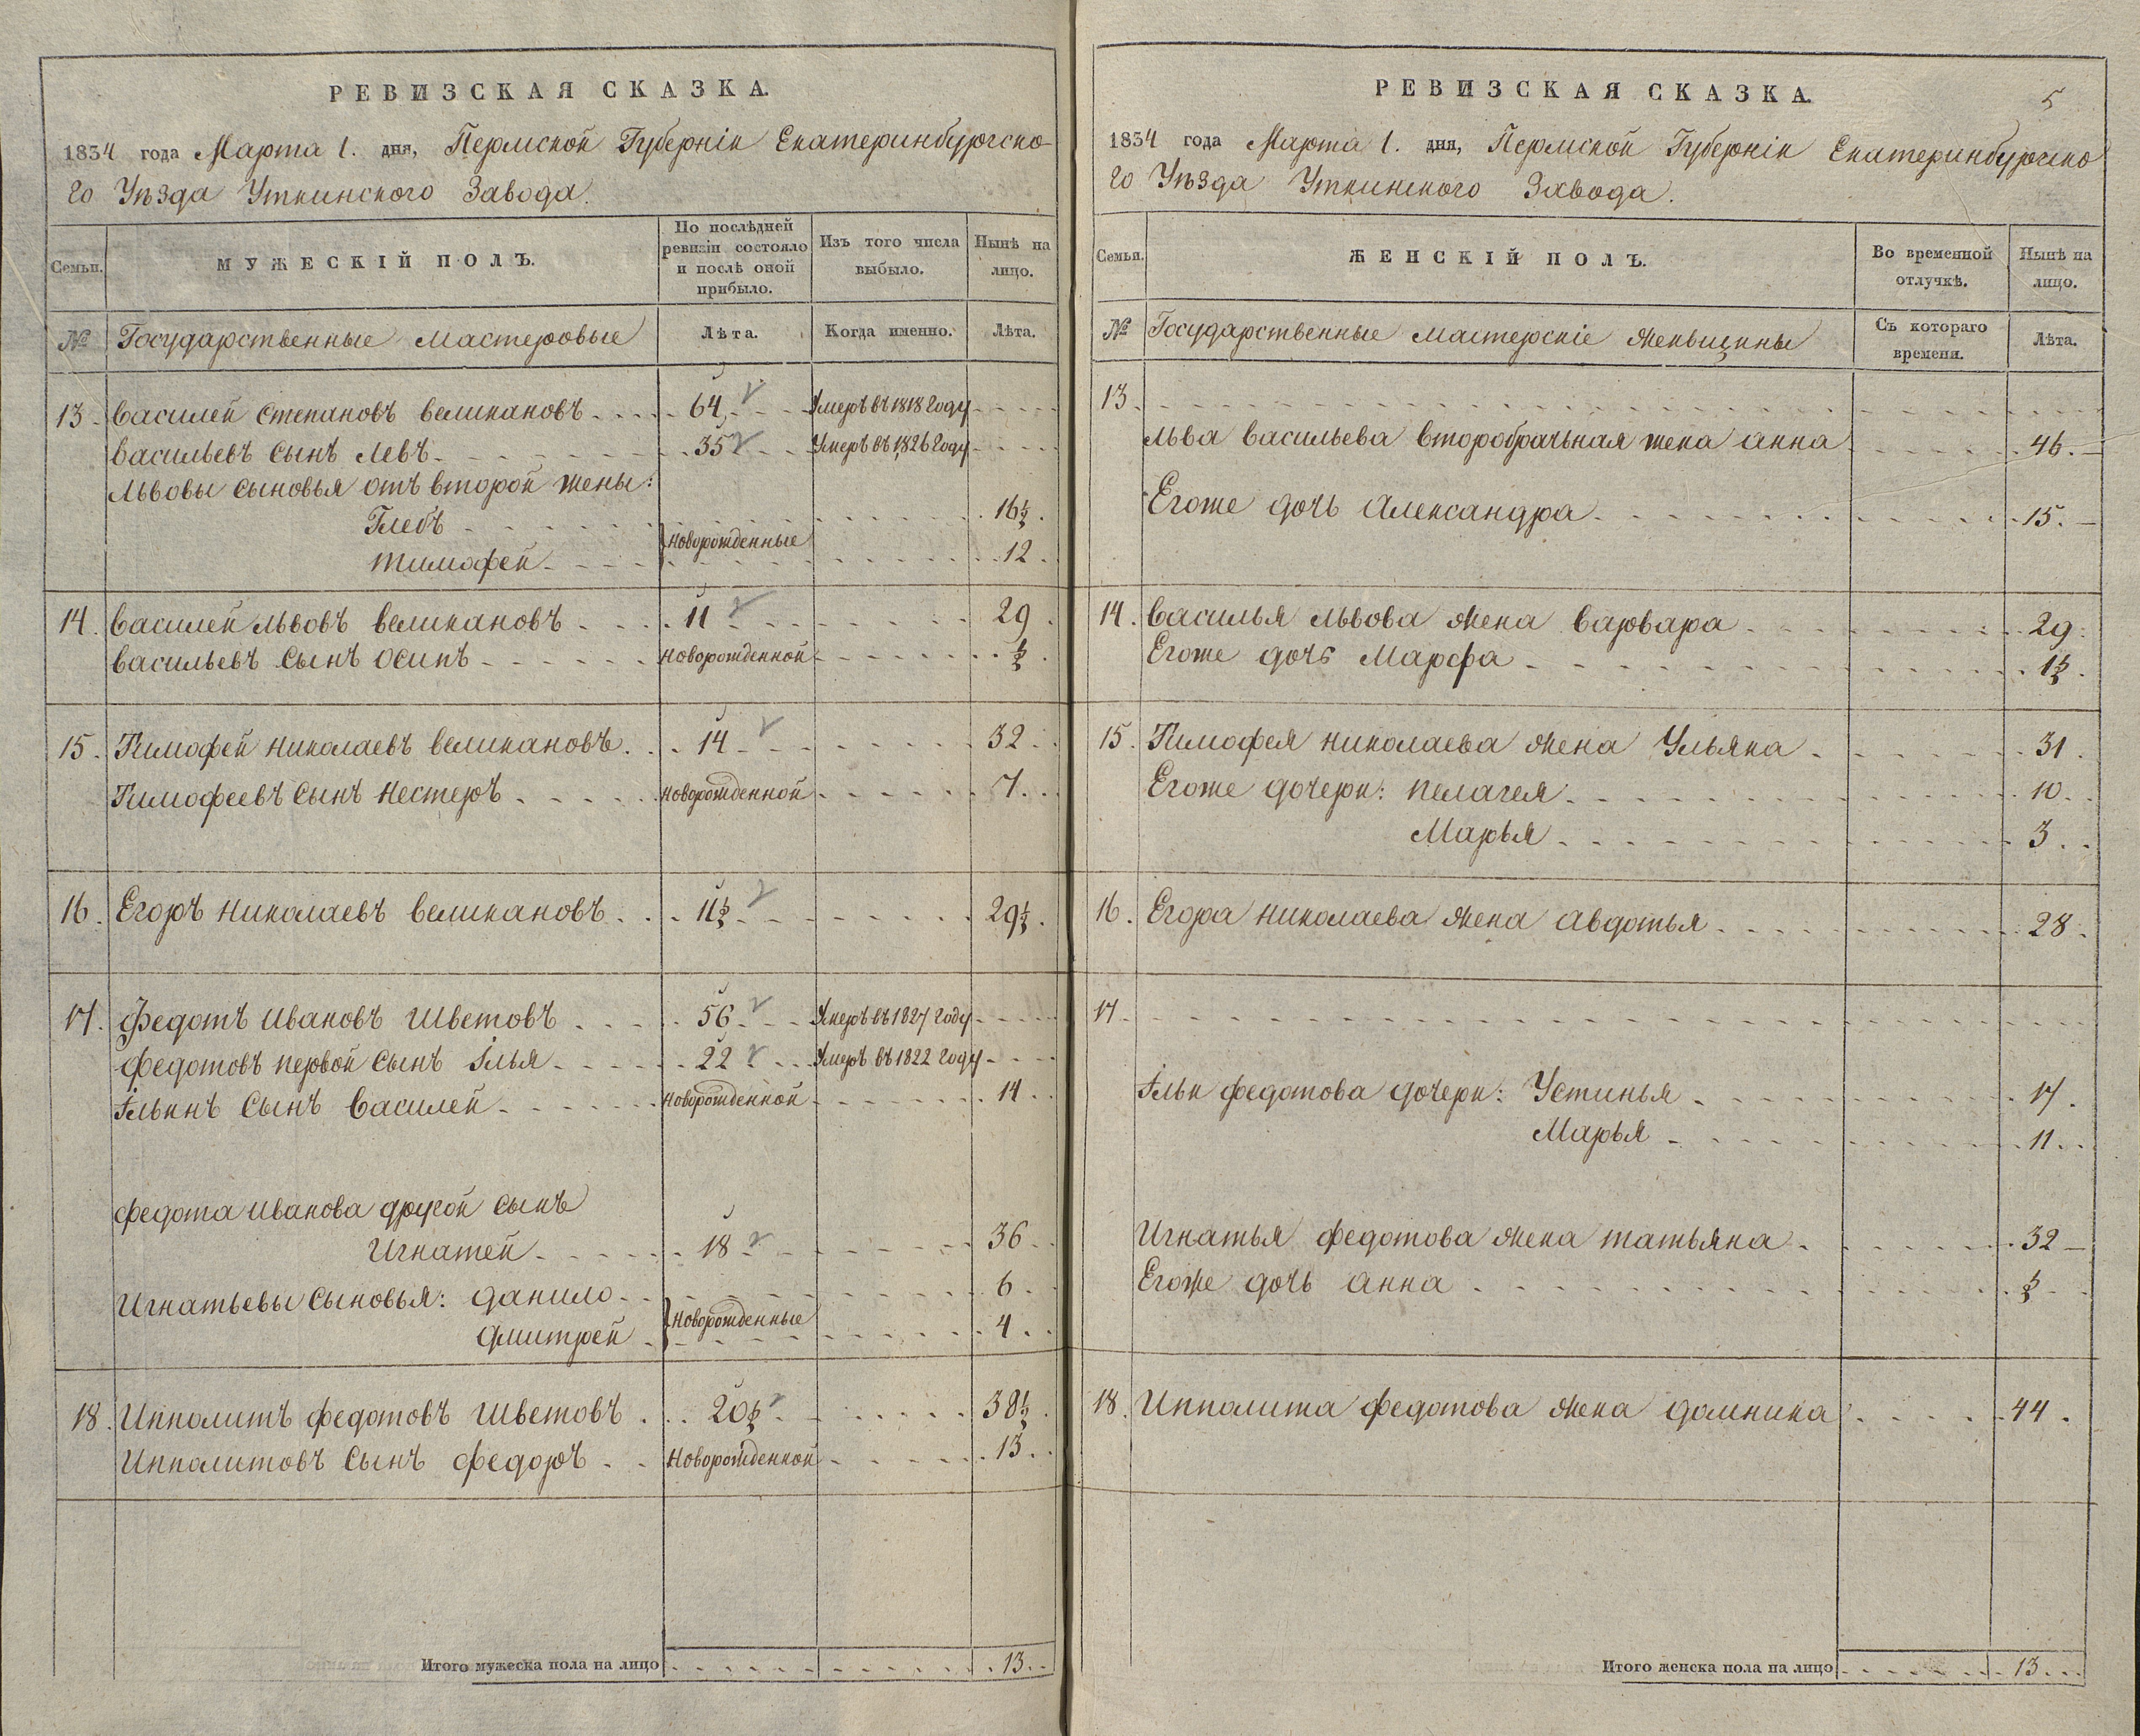 РЕВИЗСКАЯ СКАЗКА.
1834 года Марта 1. дня, Пермской Губерніи Екатеринбургско-
го Уѣзда Уткинского Завода.
Семьи.
МУЖЕСКІЙ ПОЛЪ.
По послѣдней ревизіи состояло и послѣ оной прибыло.
Изъ того числа выбыло.
Нынѣ на лицо.
№ Государственные Мастеровые
Лѣта.
Когда именно.
Лѣта.
13. Василей Степановъ Великановъ 64 Умеръ въ 1818 Году
Васильевъ Сынъ Левъ 35 Умеръ въ 1826 Году
Львовы Сыновья отъ второй жены:
Глебъ 16½
Новорожденные
Тимофей 12
14. Василей Львовъ Великановъ 11 29
Васильевъ Сынъ Осипъ Новорожденной ½
15. Тимофей Николаевъ Великановъ 14 32
Тимофеевъ Сынъ Нестеръ Новорожденной 7
16. Егоръ Николаевъ Великановъ 11½ 29½
17. Федотъ Ивановъ Шветовъ 56 Умеръ въ 1827 Году
Федотовъ первой Сынъ Илья 22 Умеръ въ 1822 Году
Ильинъ Сынъ Василей Новорожденной 14
Федота Иванова другой Сынъ
Игнатей 18 36
Игнатьевы Сыновья: Данило 6
Новорожденные
Дмитрей 4
18. Ипполитъ Федотовъ Шветовъ 20½ 38½
Ипполитовъ Сынъ Федоръ Новорожденной 13
Итого мужеска пола на лицо 13
РЕВИЗСКАЯ СКАЗКА.
5
1834 года Марта 1. дня, Пермской Губерніи Екатеринбургско
го Уѣзда Уткинского Завода.
Семьи.
ЖЕНСКІЙ ПОЛЪ.
Во временной отлучкѣ.
Нынѣ на лицо.
№ Государственные Мастерскіе Женьщины
Съ котораго времени.
Лѣта.
13.
Льва Васильева второбрачьная жена Анна 46.
Егоже дочь Александра 15.
14. Василья Львова Жена Варвара 29
Егоже дочь Марфа 1½
15. Тимофея Николаева Жена Ульяна 31
Егоже дочери: Пелагея 10
Марья 3
16. Егора Николаева Жена Авдотья 28
17.
Ильи Федотова дочери: Устинья 17
Марья 11
Игнатья Федотова Жена Татьяна 32
Егоже дочь Анна ½
18. Ипполита Федотова Жена Домника 44
Итого женска пола на лицо 13